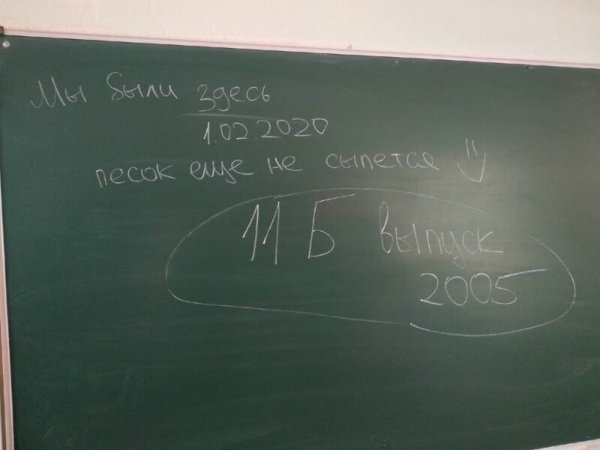 Мы были здесь
1.02.2020
песок еще не сыпется
11 Б выпуск
2005